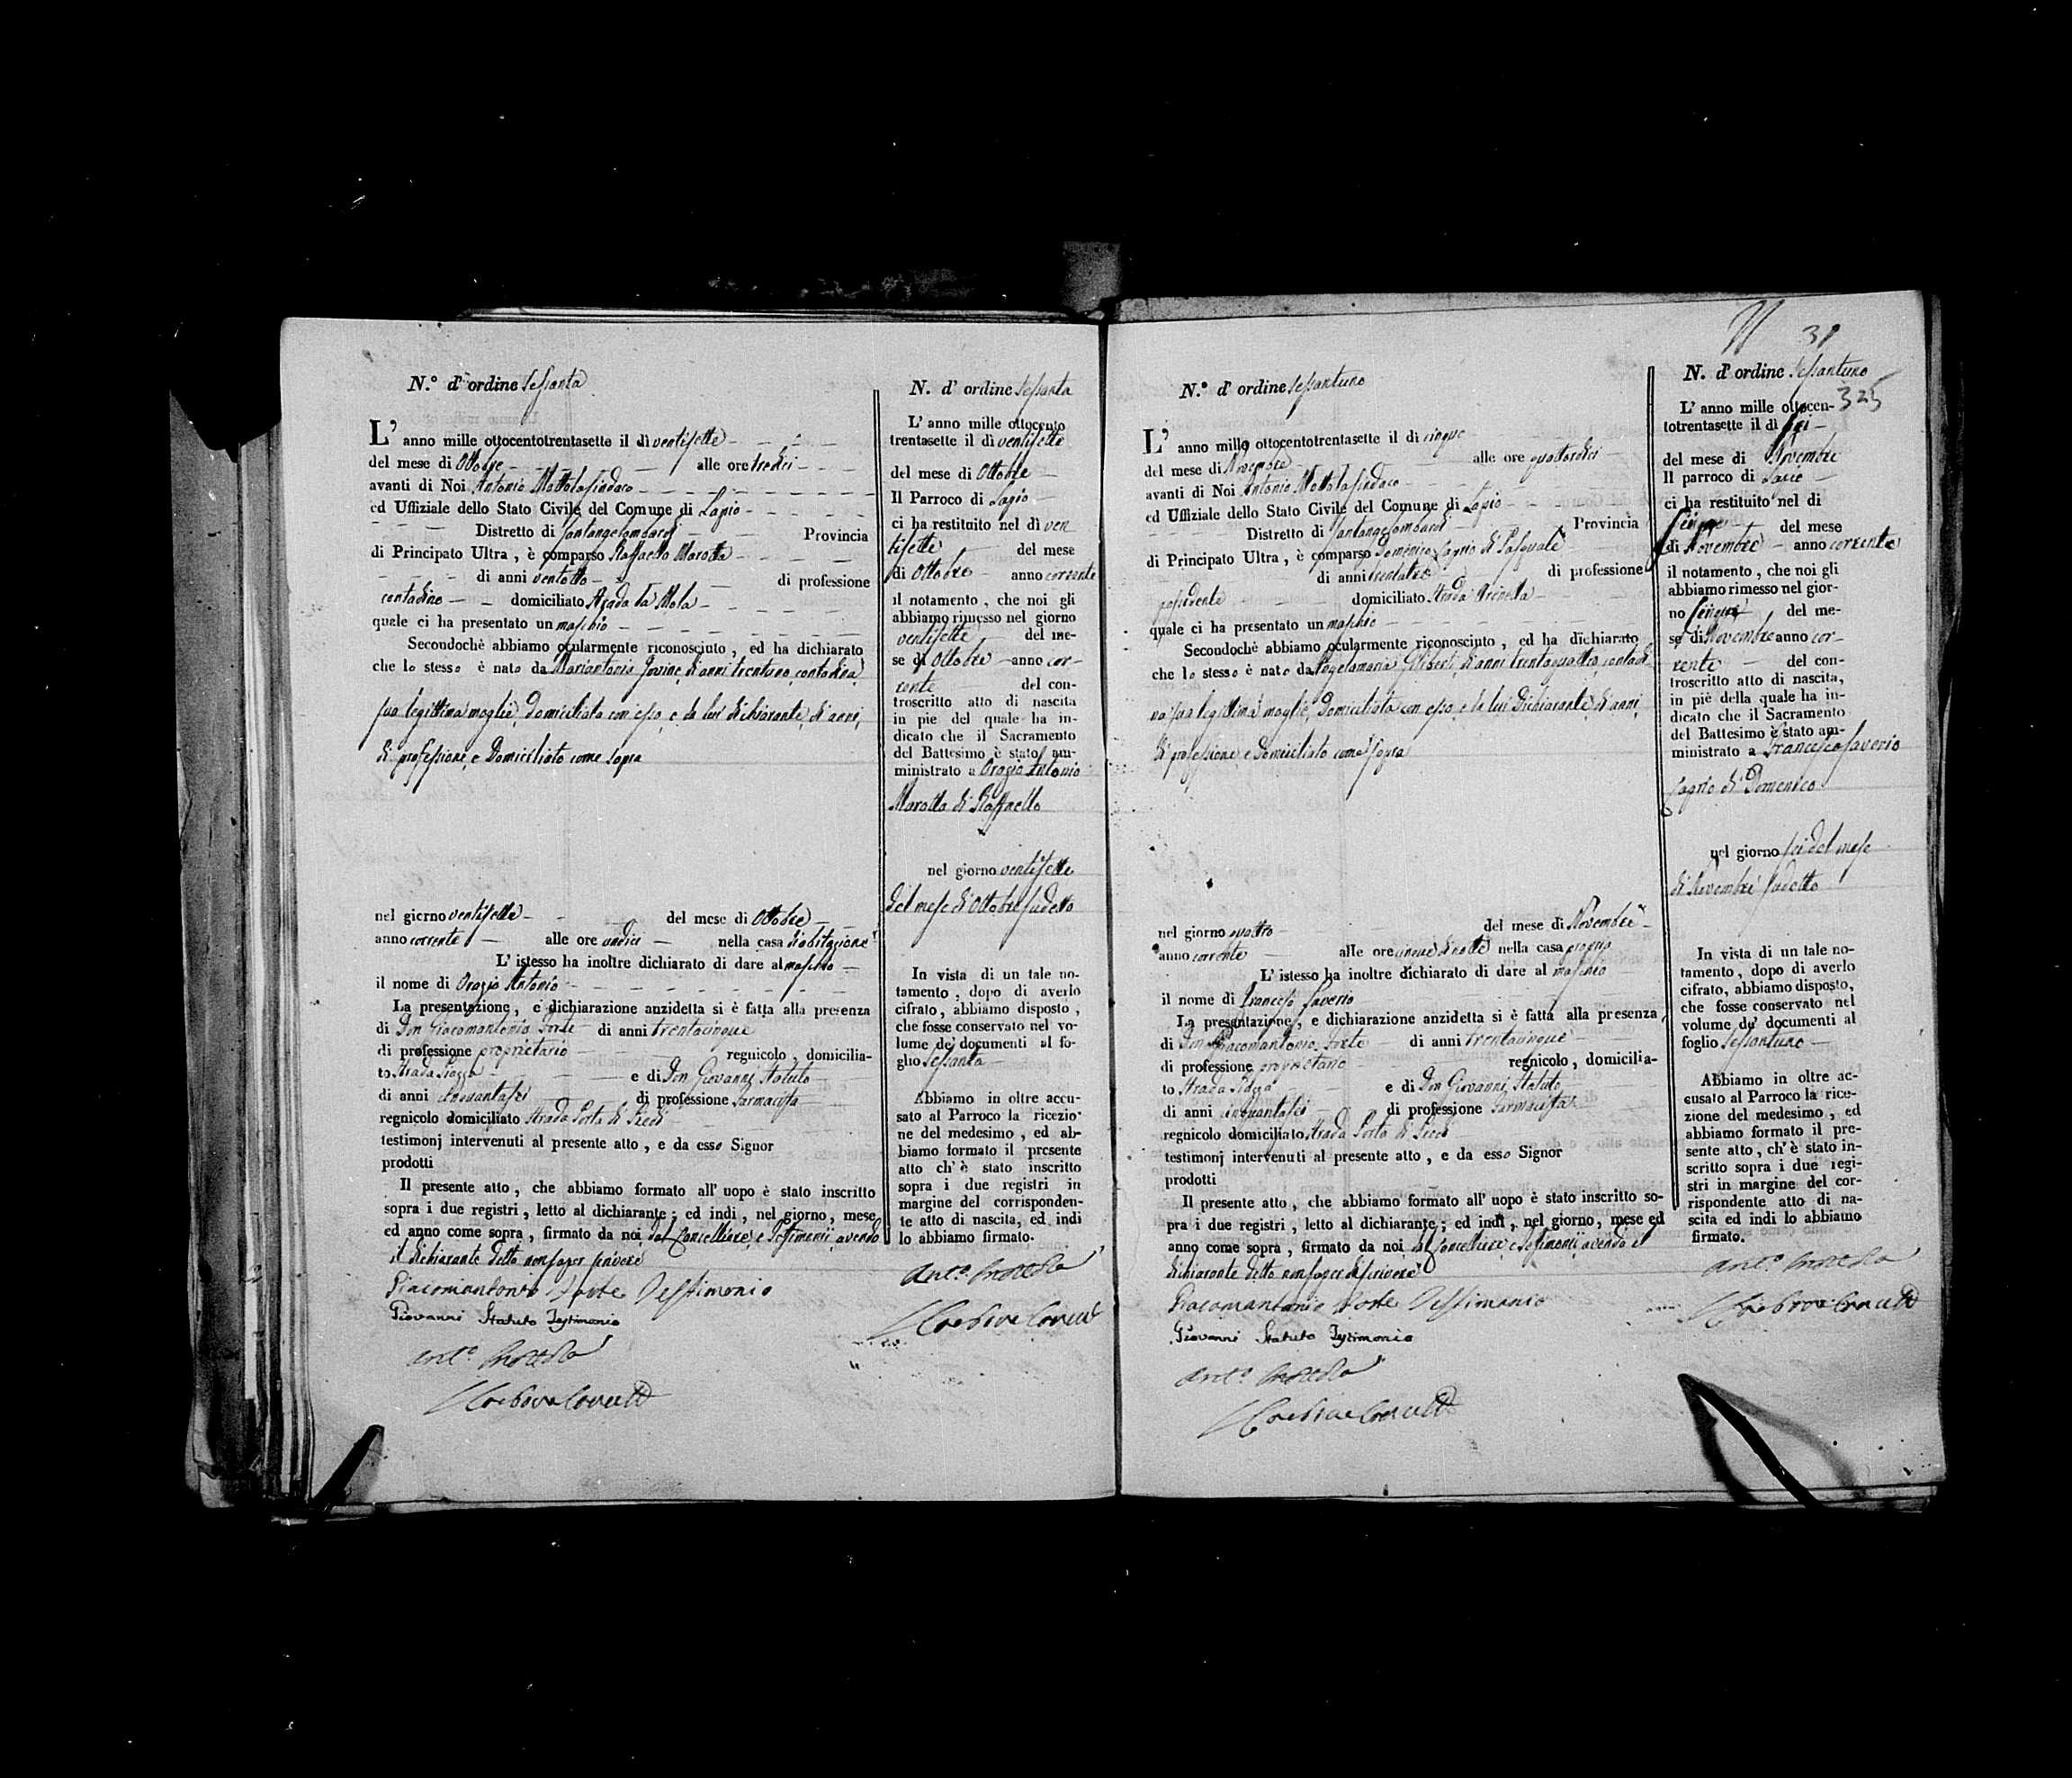 N.º d' ordine Sessanta
L' anno mille ottocentotrentasette il dì ventisette
del mese di Ottobre alle ore tredici
avanti di Noi Antonio Mottola Sindaco
ed Uffiziale dello Stato Civile del Comune di Lapio
Distretto di Santangelombardi Provincia
di Principato Ultra , è comparso Raffaello Marotta
di anni ventotto di professione
contadino domiciliato Strada la Mola
quale ci ha presentato un maschio
Secondochè abbiamo ocularmente riconosciuto , ed ha dichiarato
che lo stesso è nato da Mariantonia Iovine, di anni trentuno, contadina,
sua legittima moglie, domiciliata con esso, e da lui dichiarante, di anni,
di professione, e Domiciliato come sopra
nel giorno ventisette del mese di Ottobre
anno corrente alle ore undici nella casa di abitazione
L' istesso ha inoltre dichiarato di dare al maschio
il nome di Orazio Antonio
La presentazione , e dichiarazione anzidetta si è fatta alla presenza
di Don Giacomantonio Forte di anni trentacinque
di professione proprietario regnicolo , domicilia-
to Strada Piazza e di Don Giovanni Statuto
di anni cinquantasei di professione Farmacista
regnicolo domiciliato Strada Porta di Piedi
testimonj intervenuti al presente atto , e da esso Signor
prodotti
Il presente atto , che abbiamo formato all' uopo è stato inscritto
sopra i due registri , letto al dichiarante ; ed indi , nel giorno , mese
ed anno come sopra , firmato da noi dal Cancelliere, e Testimonii, avendo
il dichiarante detto non saper scrivere
Giacomantonio Forte Testimonio
Giovanni Statuto Testimonio
Ant.º Mottola
N. d' ordine Sessanta
L' anno mille ottocento
trentasette il dì ventisette
del mese di Ottobre
Il Parroco di Lapio
ci ha restituito nel dì ven
tisette del mese
di Ottobre anno corrente
il notamento , che noi gli
abbiamo rimesso nel giorno
ventisette del me-
se di Ottobre anno cor-
rente del con-
troscritto atto di nascita
in piè del quale ha in-
dicato che il Sacramento
del Battesimo è stato am-
ministrato a Orazio Antonio
Marotta di Raffaello
nel giorno ventisette
del mese di Ottobre sudetto
In vista di un tale no-
tamento , dopo di averlo
cifrato , abbiamo disposto ,
che fosse conservato nel vo-
lume de' documenti al fo-
glio Sessanta
Abbiamo in oltre accu-
sato al Parroco la ricezio-
ne del medesimo , ed ab-
biamo formato il presente
atto ch' è stato inscritto
sopra i due registri in
margine del corrisponden-
te atto di nascita, ed indi
lo abbiamo firmato.
Ant.º Mottola
31
N.º d' ordine Sessantuno
L' anno mille ottocentotrentasette il dì cinque
del mese di Novembre alle ore quattordici
avanti di Noi Antonio Mottola Sindaco
ed Uffiziale dello Stato Civile del Comune di Lapio
Distretto di Santangelombardi Provincia
di Principato Ultra , è comparso Domenico Caprio di Pasquale
di anni trentatre di professione
possidente domiciliato Strada Arenella
quale ci ha presentato un maschio
Secondochè abbiamo ocularmente riconosciuto , ed ha dichiarato
che lo stesso è nato da Angelamaria Gliberti, di anni trentaquattro, contadi
na sua legittima moglie, Domiciliata con esso, e da lui Dichiarante, di anni
di professione, e Domiciliato come sopra
nel giorno quattro del mese di Novembre
anno corrente alle ore cinque di notte nella casa propria
L' istesso ha inoltre dichiarato di dare al maschio
il nome di Francesco Saverio
La presentazione , e dichiarazione anzidetta si è fatta alla presenza
di Don Giacomantonio Forte di anni trentacinque
di professione proprietario regnicolo , domicilia-
to Strada Piazza e di Don Giovanni Statuto
di anni cinquantasei di professione Farmacista
regnicolo domiciliato Strada Porta di Piedi
testimonj intervenuti al presente atto , e da esso Signor
prodotti
Il presente atto , che abbiamo formato all' uopo è stato inscritto so-
pra i due registri , letto al dichiarante ; ed indi , nel giorno , mese ed
anno come sopra , firmato da noi dal Cancelliere, e Testimonii, avendo il
dichiarante detto non saper di scrivere
Giacomantonio Forte Testimonio
Giovanni Statuto Testimonio
Ant.º Mottola
N. d' ordine Sessantuno
325
L' anno mille ottocen-
totrentasette il dì sei
del mese di Novembre
Il parroco di Lapio
ci ha restituito nel di
del mese
di Novembre anno corrente
il notamento , che noi gli
abbiamo rimesso nel gior-
no del me-
se di Novembre anno cor-
rente del con-
troscritto atto di nascita,
in piè della quale ha in-
dicato che il Sacramento
del Battesimo è stato am-
ministrato a Francesco Saverio
Caprio di Domenico
nel giorno sei del mese
di Novembre sudetto
In vista di un tale no-
tamento , dopo di averlo
cifrato, abbiamo disposto,
che fosse conservato nel
volume de' documenti al
foglio Sessantuno
Abbiamo in oltre ac-
cusato al Parroco la rice-
zione del medesimo , ed
abbiamo formato il pre-
sente atto , ch' è stato in-
scritto sopra i due regi-
stri in margine del cor-
rispondente atto di na-
scita ed indi lo abbiamo
firmato.
Ant.º Mottola